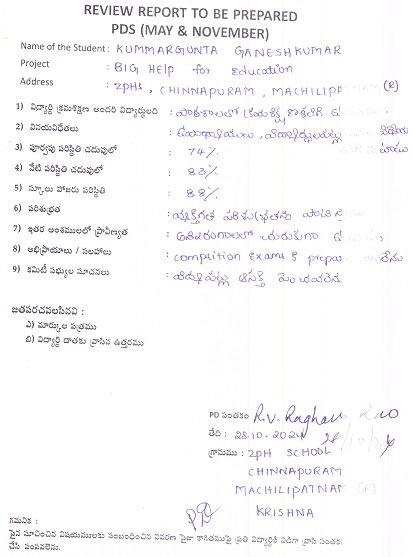 REVIEW REPORT TO BE PREPARED
PDS (MAY & NOVEMBER)
Name of the Student : KUMMARGUNTA GANESHKUMAR
Project : BIG HElp for Education
Address : ZPHS, CHINNAPURAM, MACHILIPATNAM (R)
1) విద్యార్థి క్రమశిక్షణ అందరి విద్యార్థులది : పాఠశాలలో క్రమశిక్షణ
2) వినయవిధేతలు : ఉపాధ్యాయులు,
3) పూర్వపు పరిస్థితి చదువులో : 74%
4) నేటి పరిస్థితి చదువులో : 83%
5) స్కూలు హాజరు పరిస్థితి : 88%
6) పరిశుభ్రత : వ్యక్తిగత పరిశుభ్రతను
7) ఇతర అంశములలో ప్రావీణ్యత : చురుకుగా
8) అభిప్రాయాలు / సలహాలు : complition Exams కి
9) కమిటీ సభ్యుల సూచనలు : ఆసక్తి పెంచవలెను
జతపరచవలసినవి :
ఎ) మార్కుల పత్రము
బి) విద్యార్థి దాతకు వ్రాసిన ఉత్తరము
PD సంతకం : R.V. Raghava Rao
తేది : 28.10-2024
గ్రామము : ZPH SCHOOL
CHINNAPURAM
MACHILIPATNAM (R)
KRISHNA
గమనిక :
పైన సూచించిన విషయములకు సంబంధించిన వివరణ పైజు కాగితముపై ప్రతి విద్యార్థికి విడిగా వ్రాసి సంతకం
చేసి పంపవలెను.